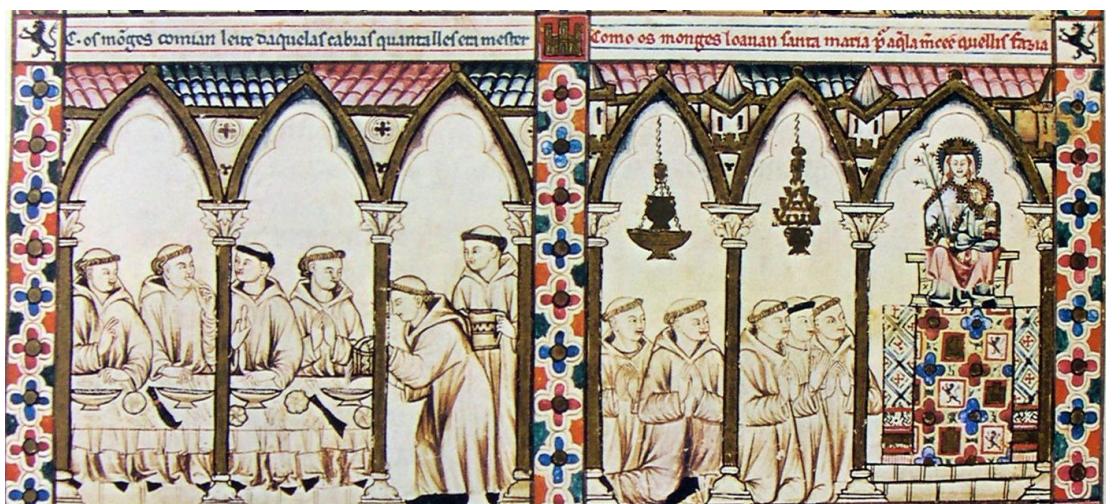 C· os mõges comian leite daquelas cabras quantalles era mester
Como os monges loauan santa maria p̃ aq̃la m̃cee quellis fazia